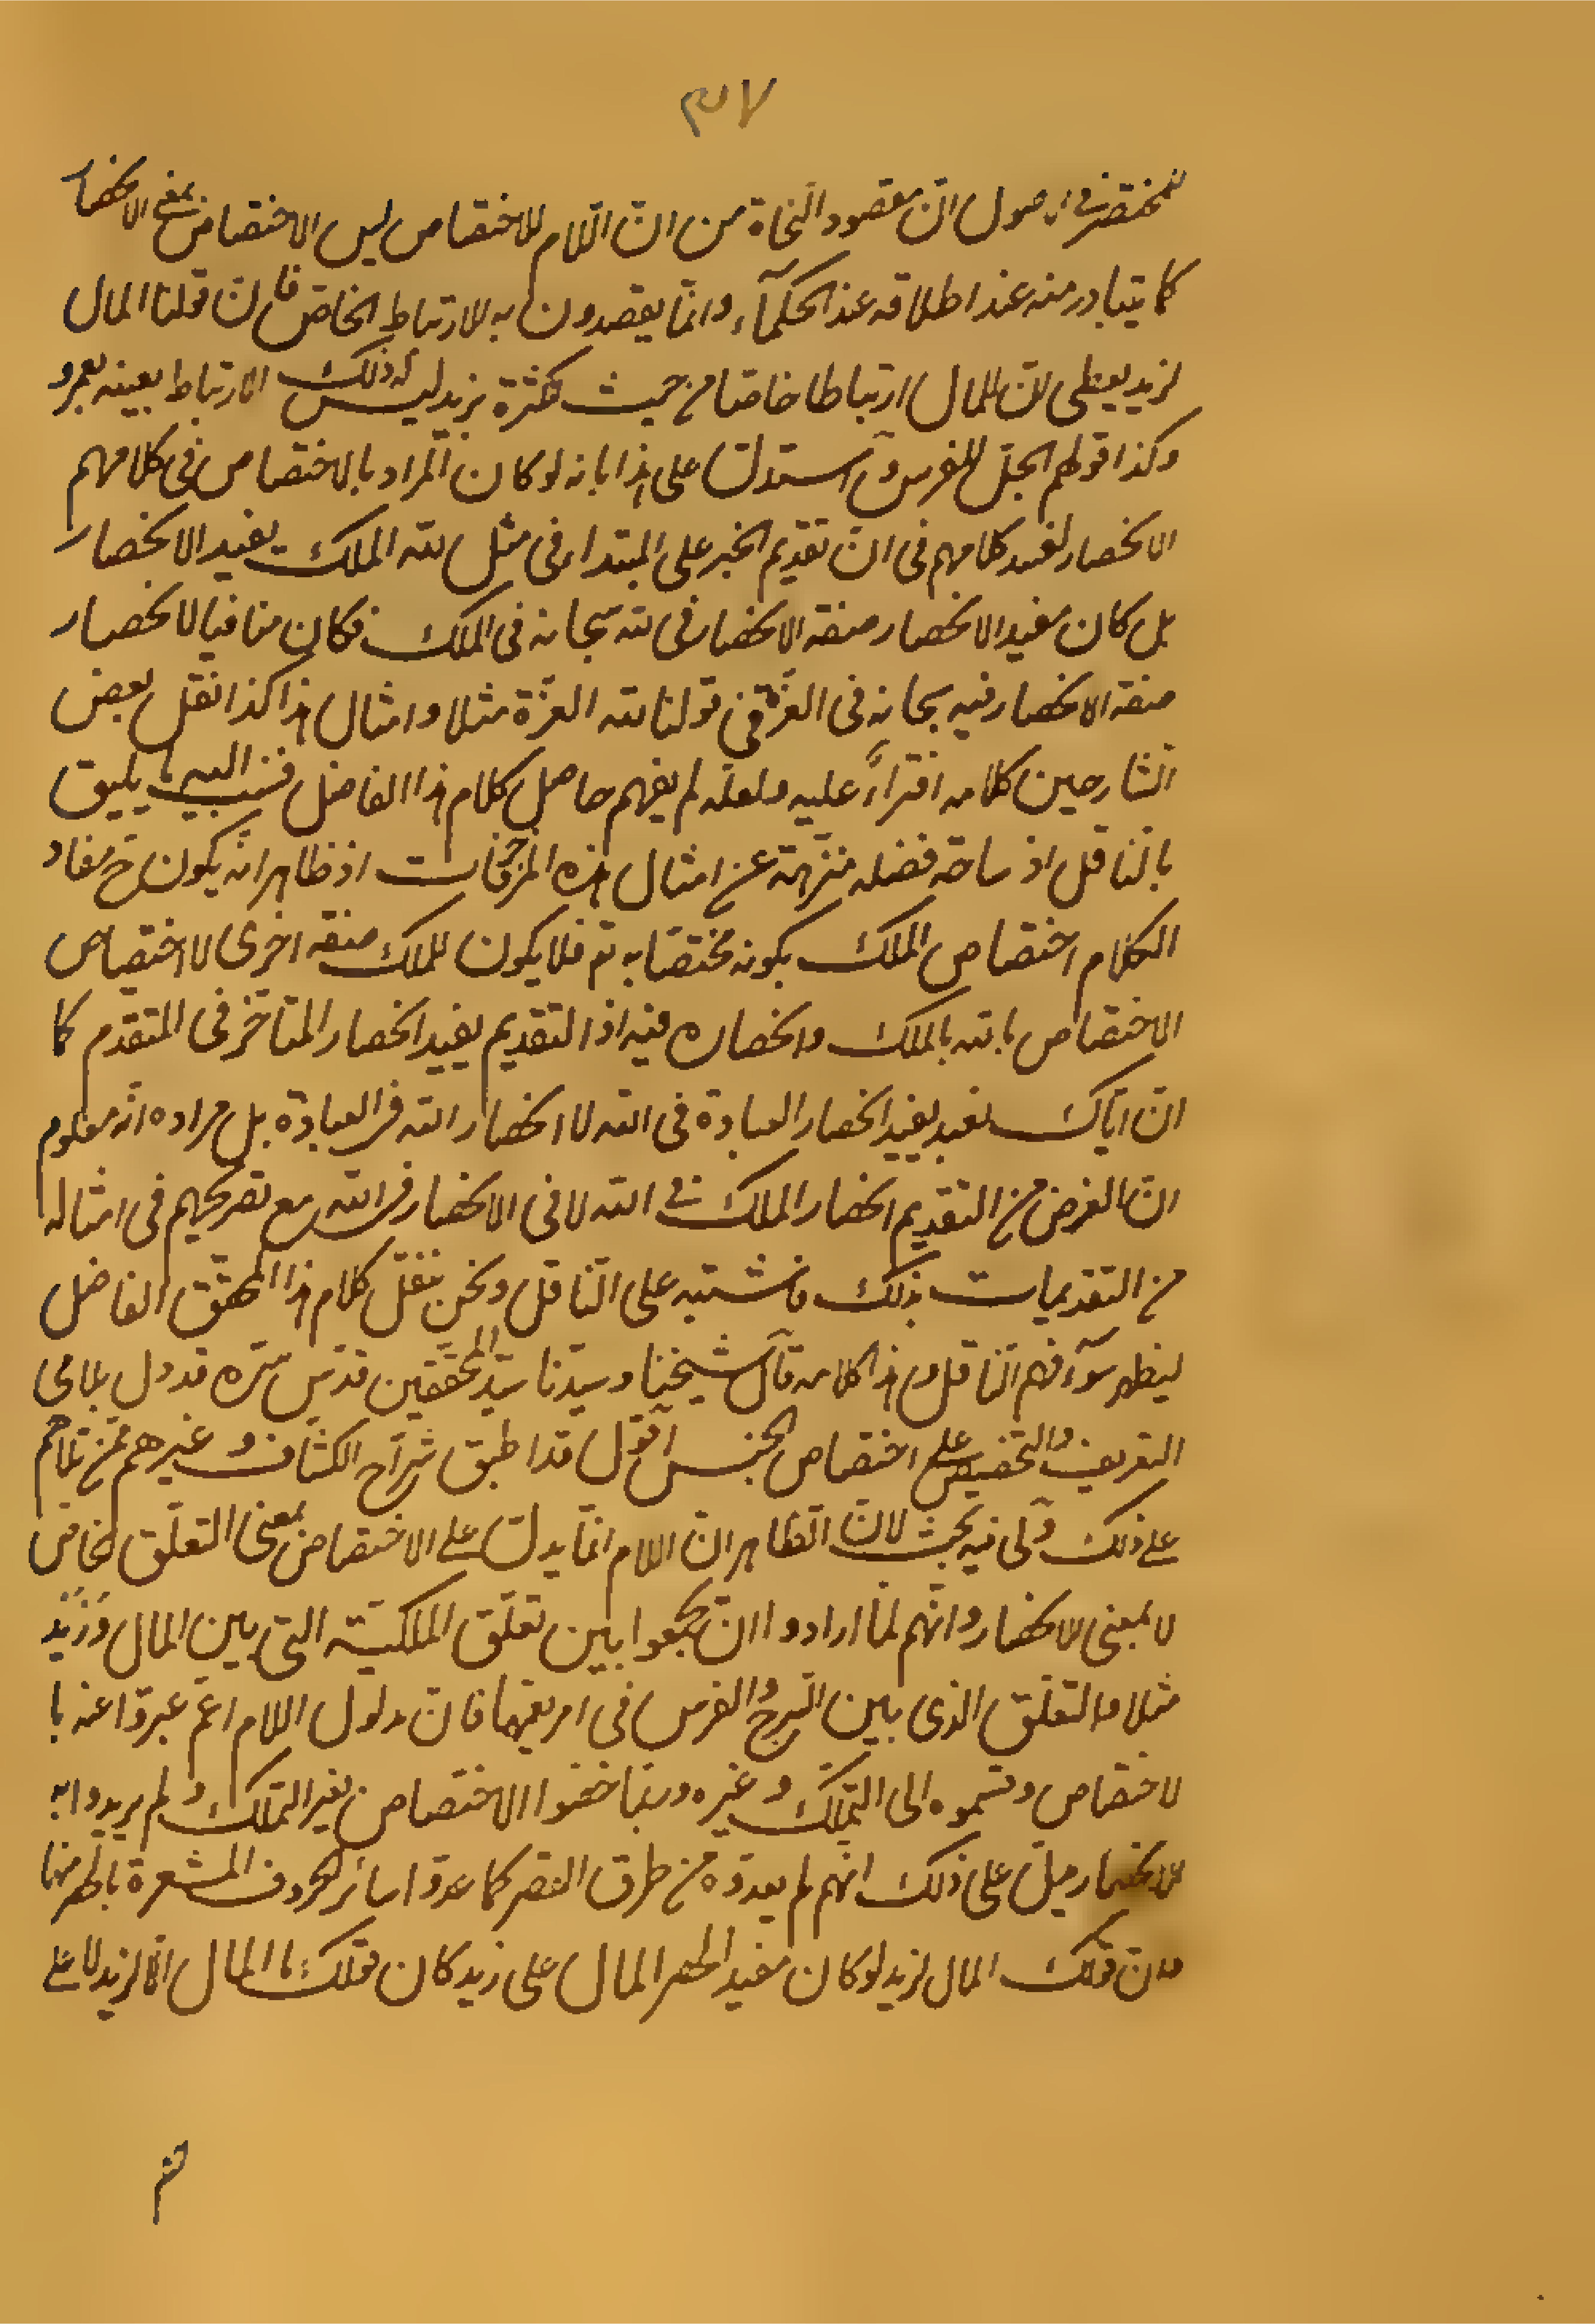 ٣٧
المختصر فى الاصول ان مقصود النحاة من ان اللام للاختصاص ليس الاختصاص بمعنى الانحصار
كما يتبادر منه عند اطلاقه عند الحكمآء وانما يقصدون به الارتباط الخاص فان قولنا المال
لزيد يعطى ان للمال ارتباطا خاصا من حيث بزيد ليس له ذلك الارتباط بعينه بعمرو
وكذا قولهم الجل للفرس واستدل على هذا بانه لو كان المراد بالاختصاص فى كلامهم
الانحصار لفسد كلامهم فى ان تقديم الخبر على المبتداء فى مثل لله الملك يفيد الانحصار
بل كان مفيد الانحصار صفة الانحصار فى لله سبحانه فى الملك فكان منافيا لانحصار
صفة الانحصار فيه سبحانه فى العزة فى قولنا لله العزة مثلا وامثال هذا كذا نقل بعض
الشارحين كلامه افتراءً عليه ولعله لم يفهم حاصل كلام هذا الفاضل فنسب اليه ما يليق
بالناقل اذ ساحة فضله منزهة عن امثال هذه المزخرفات اذ ظاهر انه يكون ح مفاد
الكلام اختصاص الملك بكونه مختصا به تع فلا يكون للملك صفة اخرى لا اختصاص
الاختصاص بالله بالملك وانحصاره فيه اذ التقديم يفيد انحصار المتاخر فى المتقدم كما
ان اياك نعبد يفيد انحصار العبادة فى الله لا انحصار الله فى العبادة بل مراده انه معلوم
ان الغرض من التقديم انحصار الملك فى الله لا فى الانحصار فى الله مع تصريحهم فى امثاله
من التقديمات بذلك فاشتبه على الناقل ونحن ننقل كلام هذا المحقق الفاضل
ليظهر سوٓء فهم الناقل و هذا كلامه قال شيخنا وسيدنا سيد المحققين قدس سره قد دل بلامى
التعريف والتخصيص على اختصاص الجنس اقول قد اطبق شراح الكشاف وغيرهم ممن
على ذلك ولى فيه بحث لان الظاهر ان اللام انما يدل على الاختصاص بمعنى التعلق الخاص
لا بمعنى الانحصار وانهم لما ارادوا ان يجمعوا بين تعلق الملكية التى بين المال وزيد
مثلا والتعلق الذى بين السرج والفرس فى امر يعمهما فان مدلول اللام اعم عبروا عنه با
لاختصاص وقسموه الى التملك وغيره وربما خصوا الاختصاص بغير التملك ولم يريدوا به
الانحصار يدل على ذلك انهم لم يعدوه من طرق القصر كما عدوا سائر الحروف المشعرة بالحصر منها
ولان قولك المال لزيد لو كان مفيد الحصر المال على زيد كان قولك ما المال الا لزيد لا على